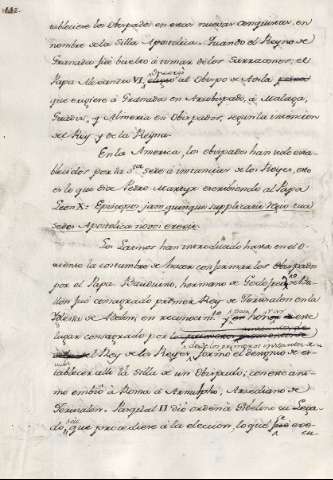 112.
estableciese los Obispados en estas nuevas conquistas, en
nombre de la Silla Apostolica. Quando el Reyno de
Granada fué buelto à tomar de los Sarracenos, el
Papa Alexandro VI, al Obispo de Avila
que erigiese à Granada en Arzobispado, à Malaga,
Guadix, y Almeria en Obispados, segun la intencion
del Rey y de la Reyna.
En la America, los obispados han sido esta-
blecidos por la Silla à instancias de los Reyes, esto
es lo que dice Pedro Martyr escribiendo al Papa
Leon X: Episcopos jam quinque supplicatu Regio tua
Sedes Apostolica novos erexit.
Los Latinos han introducido hasta en el O-
riente la costumbre de hacer confirmar los Obispados
por el Papa. Balduino, hermano de Godofredo de Bu-
llon fué consagrado primer Rey de Jerusalen en la
Iglesia de Belen; en reconocim.to y para honrar este
lugar consagrado por
los primeros instantes de
el Rey de los Reyes, formó el designio de es-
tablecer alli la Silla de un Obispado; con este ani-
mo embió à Roma à Arnulpho, Arcediano de
Jerusalen. Pasqual II dió orden à su Lega-
do, que procediese à la eleccion,